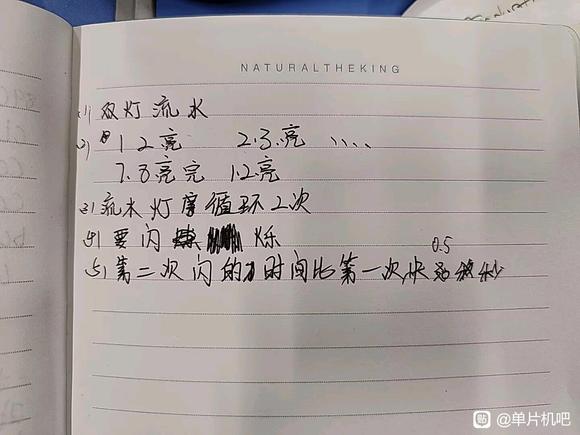 NATURALTHEKING
1) 双灯流水
2) 12亮 2.3.亮 ....
7.8亮完 12亮
3) 流水灯 循环2次
4) 要闪烁
0.5
5) 第二次闪的时间比第一次快 秒
@单片机吧